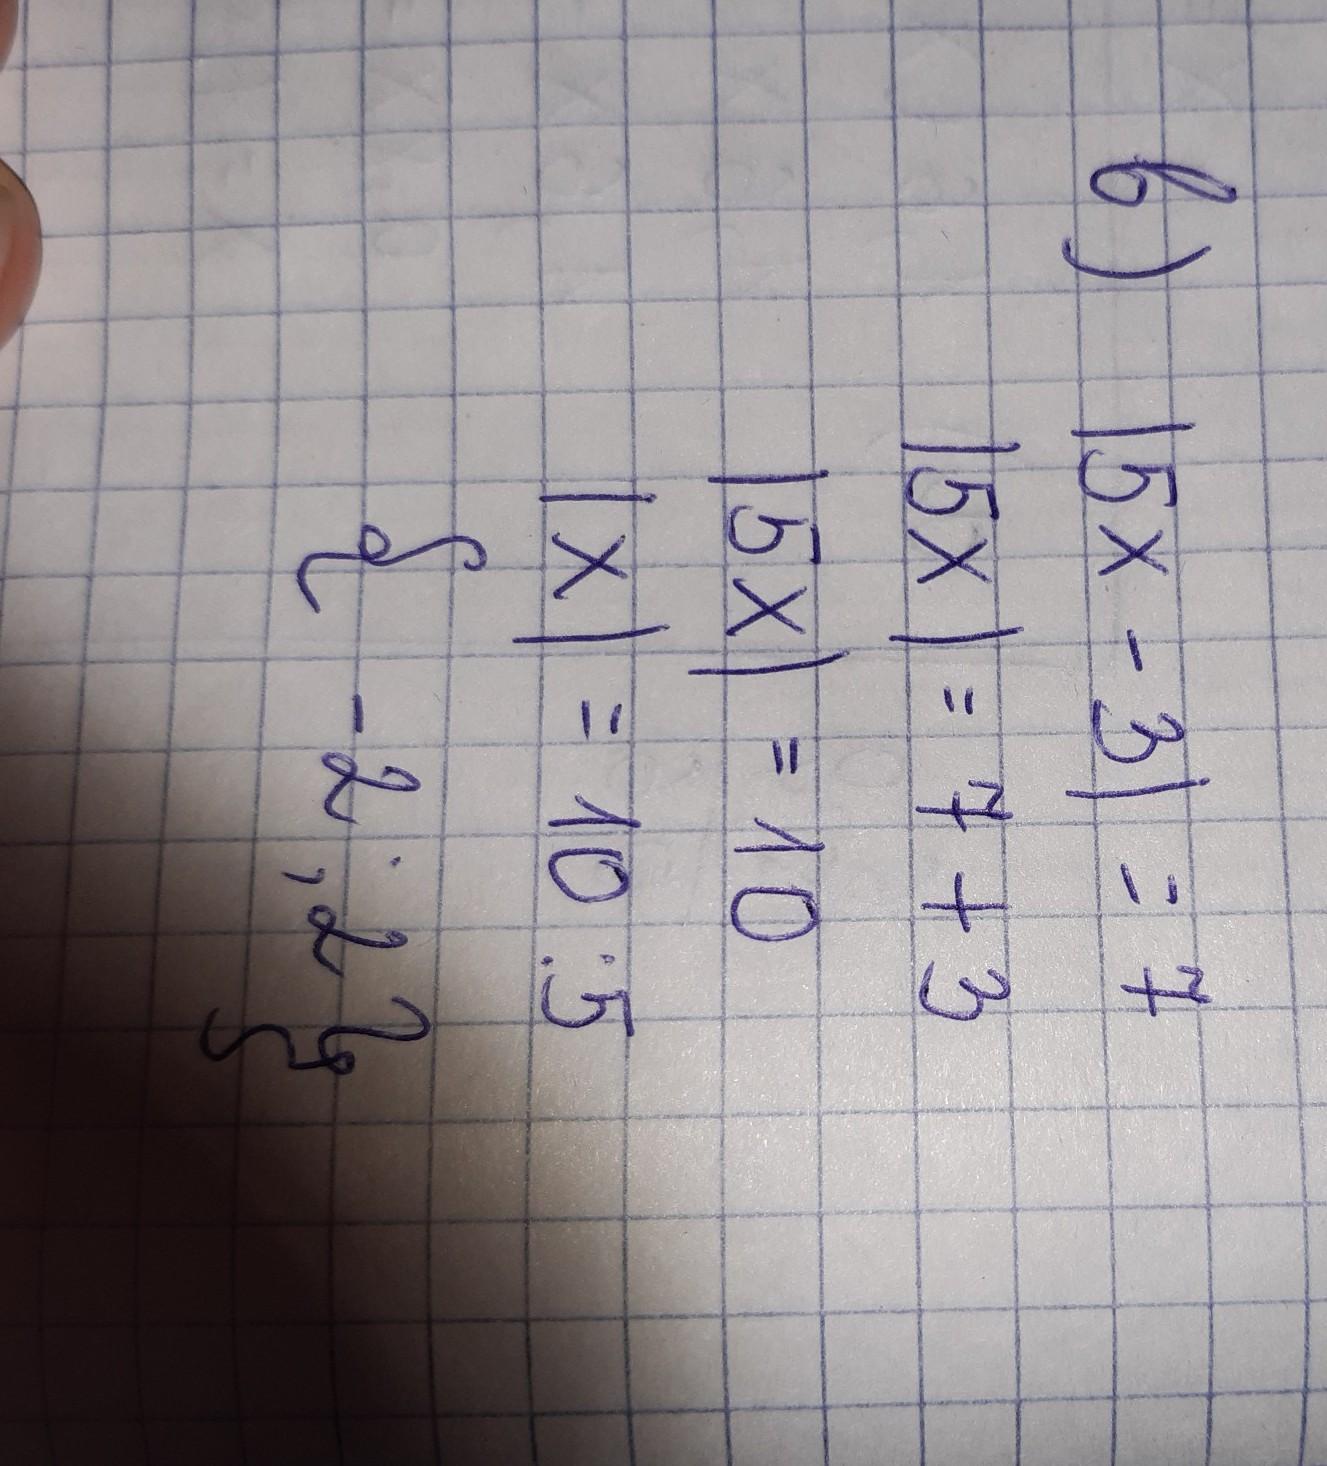 в) |5x - 3| = 7
|5x| = 7 + 3
|5x| = 10
|x| = 10 : 5
{ -2 ; 2 }